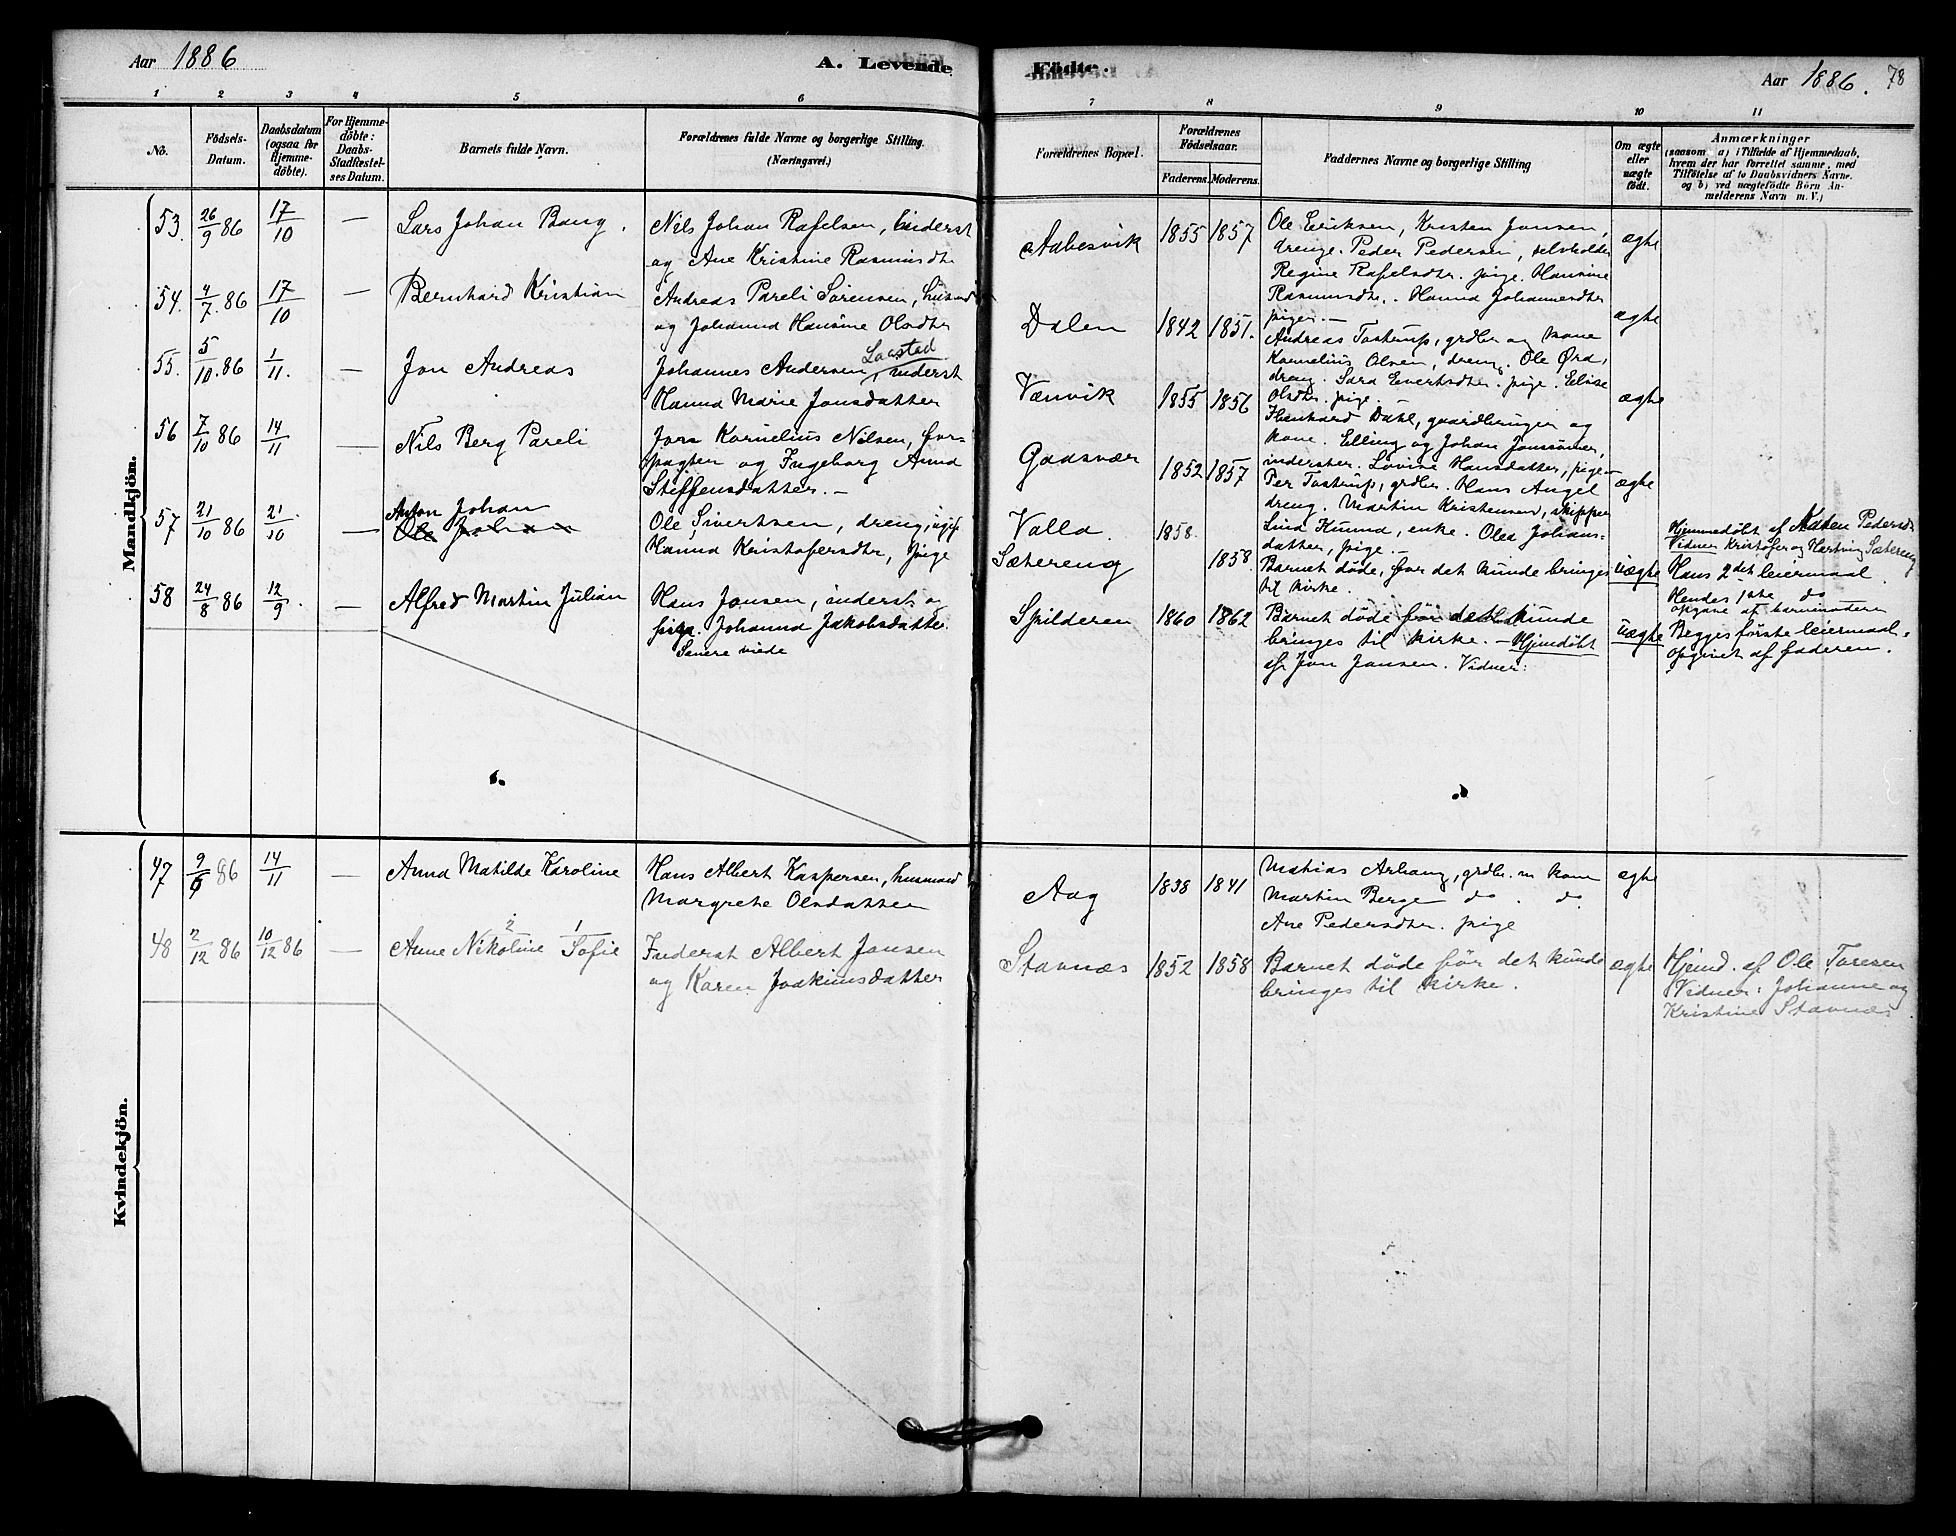 Aar 1886
A. Levende
Fødte.
Aar 1886. 78
1 2 3 4 5 6 7 8 9 10 11
No.
Födsels-
Datum.
Daabsdatum
(ogsaa for
Hjemme-
döbte).
For Hjemme-
döbte:
Daabs-
Stadfæstel-
ses Datum.
Barnets fulde Navn.
Forældrenes fulde Navne og borgerlige Stilling.
(Næringsvei.)
Forældrenes Bopæl.
Forældrenes
Födselsaar.
Faderens. Moderens.
Faddernes Navne og borgerlige Stilling
Om ægte
eller
uægte
födt.
Anmærkninger
(saasom a) i Tilfælde af Hjemmedaab,
hvem der har forrettet samme, med
Tilföielse af to Daabsvidners Navne.
og b) ved uægtefödte Börn An-
melderens Navn m.V.)
Mandkjön.
53. 26/9 86 17/10 — Lars Johan Bang.
Nils Johan Rafelsen, Inderst
og Ane Kristine Rasmusdtr
Aabesvik 1855 1857
Ole Eriksen, Kristen Jonsen,
drenge. Peder Pedersen, selvholder
Regine Rafelsdtr. pige. Hansine
Rasmusdtr. Hanna Johannesdtr
piger.—
ægte
54. 4/7 86 17/10 — Bernhard Kristian
Andreas Pareli Sörensen, husmd
og Johanna Hansine Olsdtr
Dalen 1842 1851.
Andreas Tostrup, grdbr og kone
Kornelius Olsen, dreng. Ole Ørd,
dreng. Sara Evertsdtr. pige. Elise
Olsdtr. pige.
ægte
55. 5/10 86 1/11. — Jon Andreas
Laastad
Johannes Andersen, inderst
Hanna Marie Jonsdatter
Vænvik 1855 1856
Hanhard Dahl, gaardbruger og
kone. Elling og Johan Jonssöner,
inderster. Lovise Hansdatter, pige—
ægte
56 7/10 86 14/11 — Nils Berg Pareli
Jons Kornelius Nilsen, for-
pagter og Ingeborg Anna
Steffensdatter.—
Gaasvær 1852 1857
Per Tostrup, grdbr. Hans Angel
dreng. Martin Kristensen, skipper
Lina Kunna, enke. Olea Johans-
datter, pige.—
ægte
57 21/10 86 21/10 — Anton Johan
Ole Johan
Ole Sivertsen, dreng, ugif.
Hanna Kristofersdtr, pige
Valla. 1858.
Sætereng 1858.
Barnet døde, før det kunde bringes
til kirke.
uægte
Hjemmedøbt af Maren Pedersd.
Vidner Kristofer og Hartvig Sætereng
Hans 2det leiermaal.
Hendes 1ste do
opgave af barnemoderen
58 24/8 86 12/9. — Alfred Martin Julian
Hans Jonsen, inderst og
pige. Johanna Jakobsdatter.
Senere viede
Spilderen 1860 1862
Barnet døde før det kunde
bringes til kirke.— Hjemdøbt
af Jon Jonsen. Vidner:
uægte
Begges første leiermaal.
opgivet af faderen.
Kvindekjön.
47 9/9 86 14/11 — Anna Matilde Karoline
Hans Albert Kaspersen, husmand
Margrete Olsdatter
Aag 1838 1841
Mathias Arhaug, grdbr. m kone
Martin Berge do. do.
Ane Pedersdtr. pige
ægte
2 1
48 2/12 86 10/12 86 — Anne Nikoline Sofie
Inderst Albert Jonsen
og Karen Joakimsdatter
Stavnæs 1852 1858
Barnet døde før det kunde
bringes til kirke.
ægte
Hjemd. af Ole Toresen
Vidner: Johanne og
Kristine Stavnæs